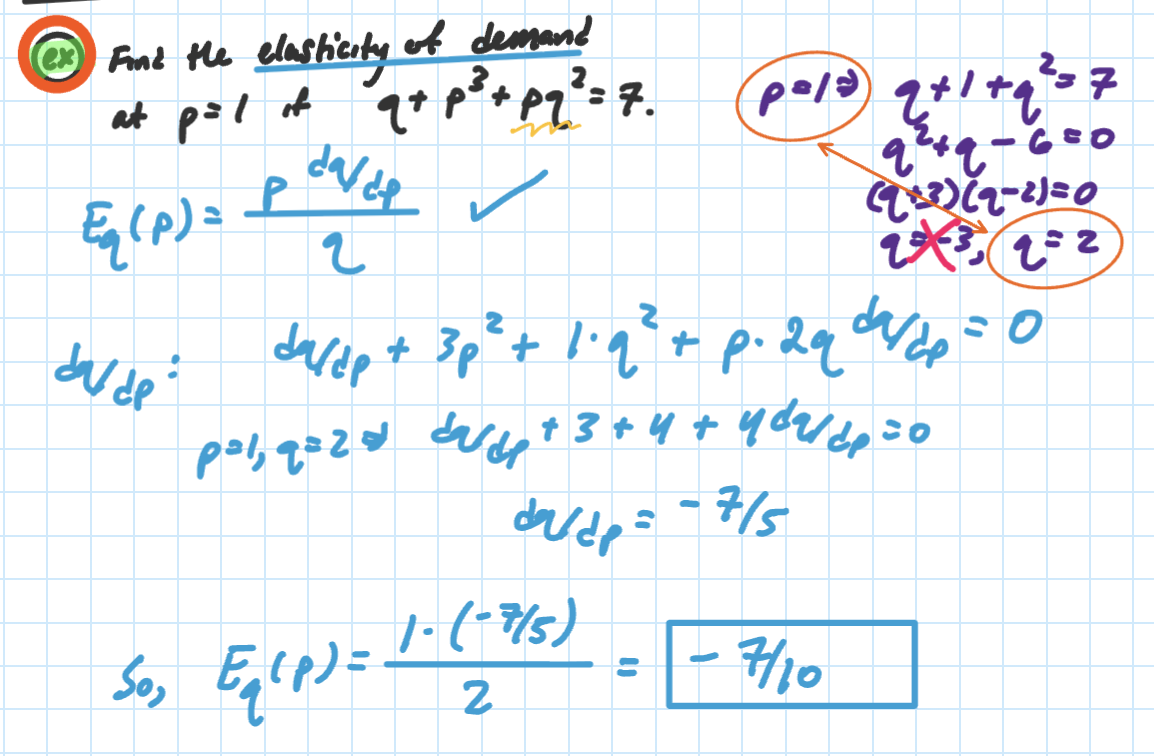 ex Find the elasticity of demand
at p=1 if q + p³ + pq² = 7.
p=1 ⇒ q+1+q²=7
q²+q-6=0
(q+3)(q-2)=0
q=-3, q=2
E_q(p) = (p dq/dp)/q ✓
dq/dp: dq/dp + 3p² + 1·q² + p·2q dq/dp = 0
p=1, q=2 ⇒ dq/dp + 3 + 4 + 4dq/dp = 0
dq/dp = -7/5
So, E_q(p) = (1·(-7/5))/2 = -7/10